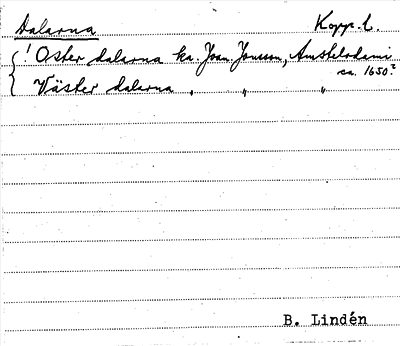 Dalarna Kopp. l.
{ ! Öster dalarna ka. Joan. Jonsson, Amstelodami
ca. 1650?
{ Väster dalarna , " "
B. Lindén